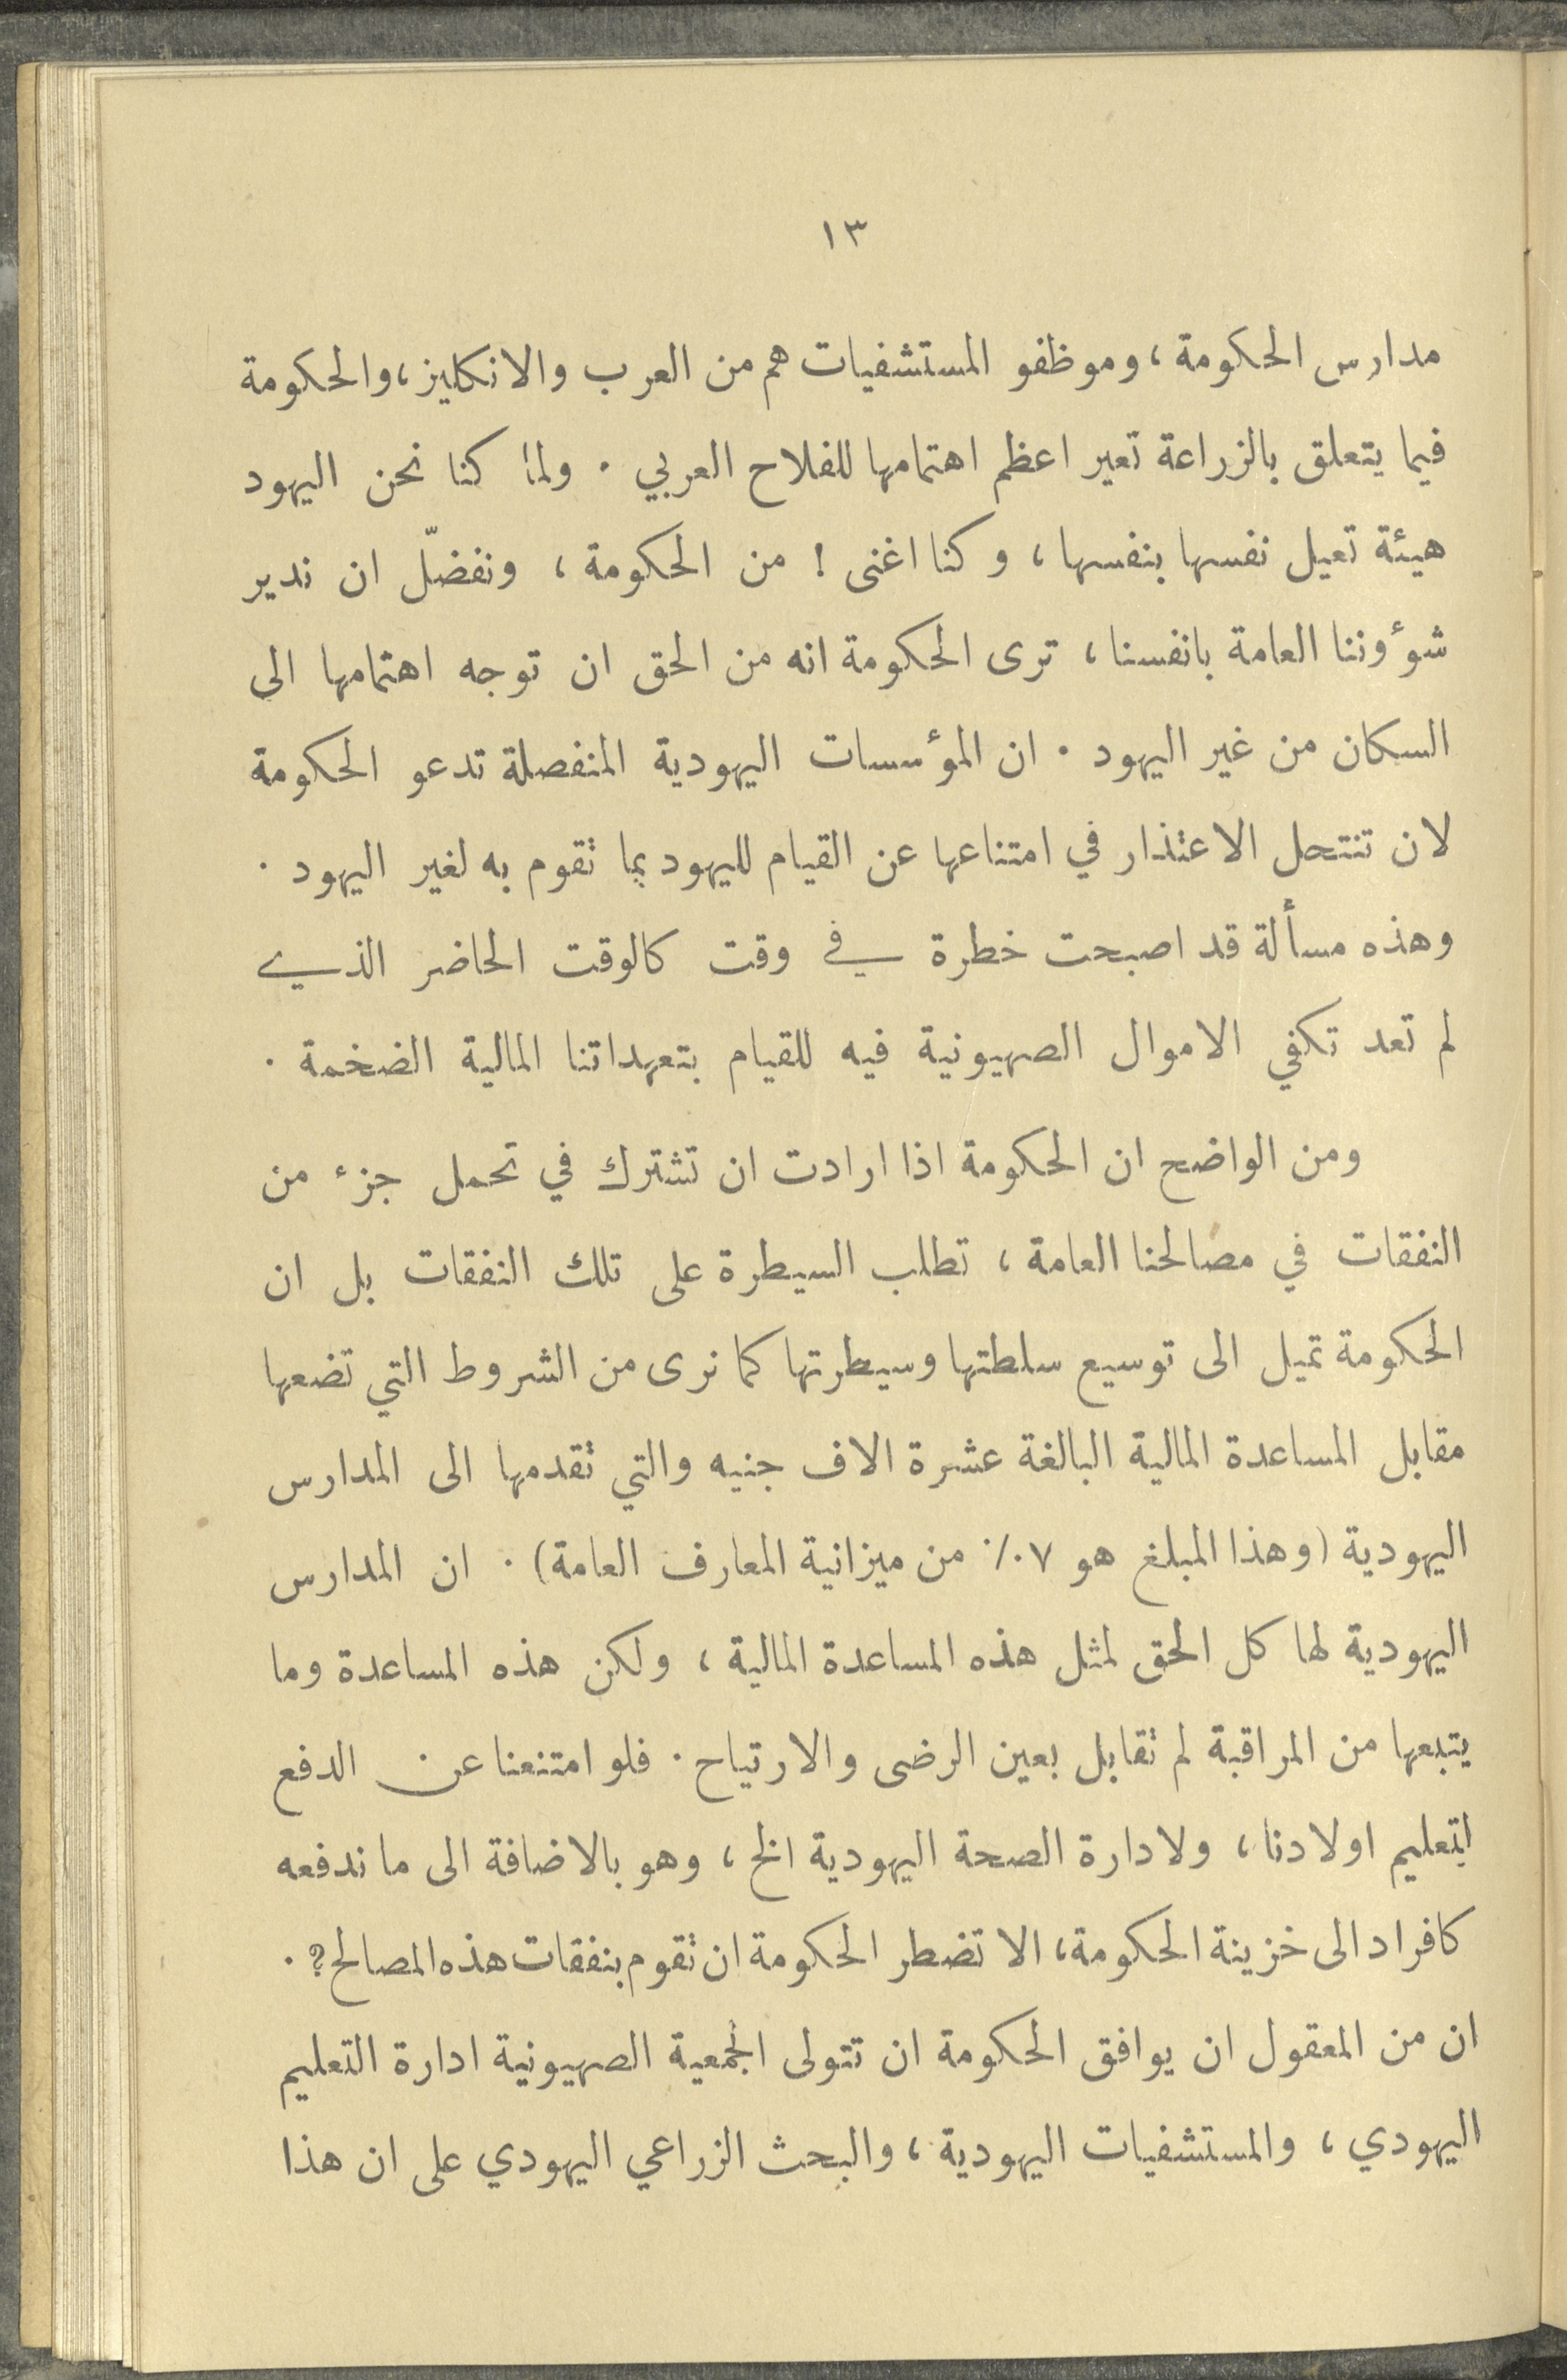 ١٣
مدارس الحكومة، وموظفو المستشفيات هم من العرب والانكليز، والحكومة
فيما يتعلق بالزراعة تعير اعظم اهتمامها للفلاح العربي . ولما كنا نحن اليهود
هيئة تعيل نفسها بنفسها، وكنا اغنى ! من الحكومة ، ونفضّل ان ندير
شؤوننا العامة بانفسنا، ترى الحكومة انه من الحق ان توجه اهتمامها الى
السكان من غير اليهود . ان المؤسسات اليهودية المنفصلة تدعو الحكومة
لان تنتحل الاعتذار في امتناعها عن القيام لليهود بما تقوم به لغير اليهود .
وهذه مسألة قد اصبحت خطرة في وقت كالوقت الحاضر الذي
لم تعد تكفي الاموال الصهيونية فيه للقيام بتعهداتنا المالية الضخمة .
ومن الواضح ان الحكومة اذا ارادت ان تشترك في تحمل جزء من
النفقات في مصالحنا العامة ، تطلب السيطرة على تلك النفقات بل ان
الحكومة تميل الى توسيع سلطتها وسيطرتها كما نرى من الشروط التي تضعها
مقابل المساعدة المالية البالغة عشرة الاف جنيه والتي تقدمها الى المدارس
اليهودية (وهذا المبلغ هو ٧٪ من ميزانية المعارف العامة) . ان المدارس
اليهودية لها كل الحق لمثل هذه المساعدة المالية ، ولكن هذه المساعدة وما
يتبعها من المراقبة لم تقابل بعين الرضى والارتياح . فلو امتنعنا عن الدفع
لتعليم اولادنا ، ولادارة الصحة اليهودية الخ ، وهو بالاضافة الى ما ندفعه
كافراد الى خزينة الحكومة، الا تضطر الحكومة ان تقوم بنفقات هذه المصالح؟ .
ان من المعقول ان يوافق الحكومة ان تتولى الجمعية الصهيونية ادارة التعليم
اليهودي ، والمستشفيات اليهودية ، والبحث الزراعي اليهودي على ان هذا